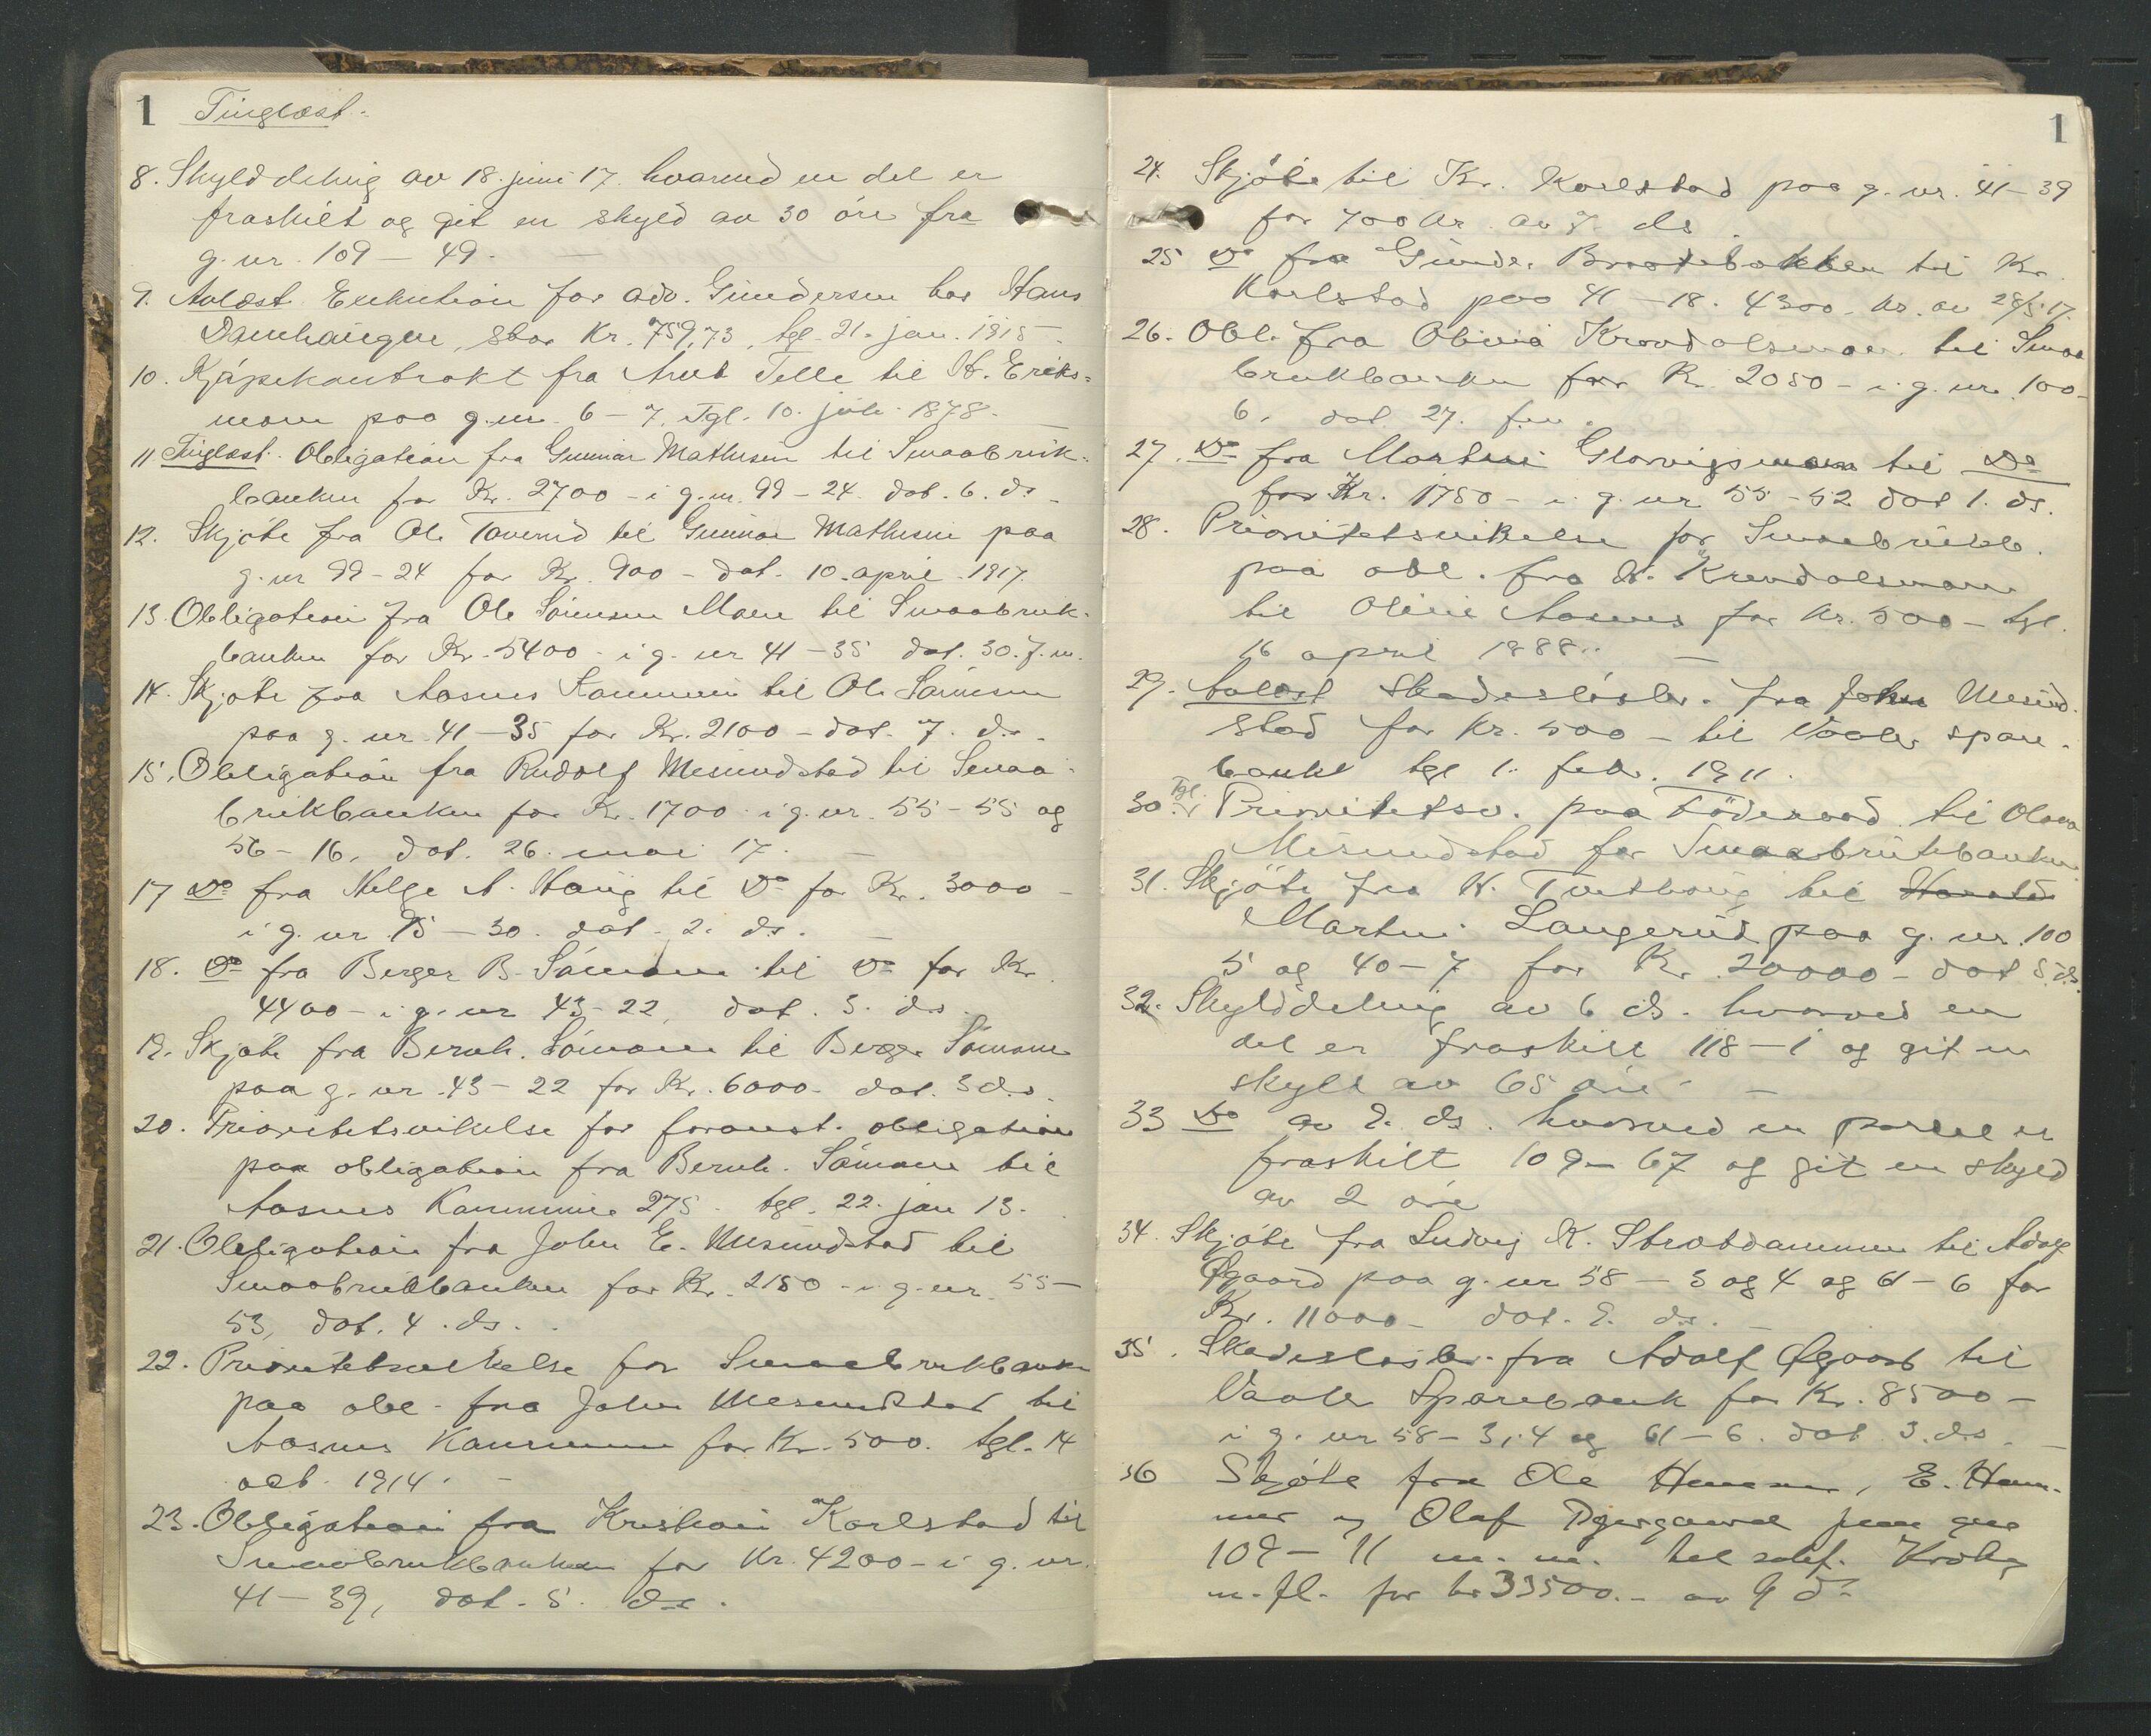 1 Tinglæst.
8. Skylddeling av 18. juni 17. hvorved en del er
fraskilt og git en skyld av 30 öre fra
g. nr. 109 – 49. –
9. Avlæst Exekution for adv. Gundersen hos Hans
Damhaugen, stor Kr. 759,73, tgl. 21. jan. 1915 –
10. Kjöpekontrakt fra Arnt Telle til H. Eriks-
moen paa g. nr. 6 – 7, Tgl. 10. juli 1878. –
11 Tinglæst. Obligation fra Gunnar Mathesen til Smaabruk-
banken for Kr. 2700 – i g. nr. 99 – 24. dat. 6. ds –
12. Skjöte fra Ole Taverud til Gunnar Mathesen paa
g. nr 99 – 24 for Kr. 900 – dat. 10. april 1917.
13. Obligation fra Ole Simensen Moen til Smaabruk-
banken for Kr. 5400 – i g. nr 41 – 35 dat. 30. f. m.
14. Skjöte fra Aasnes Kommune til Ole Simensen
paa g. nr. 41 – 35 for Kr. 2100 – dat. 7. ds.
15. Obligation fra Rudolf Mesundstad til Smaa-
brukbanken for Kr. 1700 – i g. nr. 55 – 55 og
56 – 16, dat. 26. mai 17. –
17 Do fra Helge A. Haug til Do for Kr. 3000 –
i g. nr. 95 – 30. dat. 2. ds. –
18. Do fra Berger B. Sömoen til Do for Kr.
4400 – i g. nr 43 – 22, dat. 3. ds.
19. Skjöte fra Bernh. Sömoen til Berger Sömoen
paa g. nr. 43 – 22 for Kr. 6000 – dat. 3 ds.
20. Prioritetsvikelse for foranst. obligation
paa obligation fra Bernh. Sömoen til
Aasnes Kommune 275 – tgl. 22. jan 13.
21. Obligation fra John E. Mesundstad til
Smaabrukbanken for Kr. 2150 – i g. nr. 55 –
53, dat. 4. ds.
22. Prioritetsvikelse for Smaabrukbanken
paa obl. fra John Mesundstad til
Aasnes Kommune for Kr. 500. tgl. 14
okt. 1914. –
23. Obligation fra Kristian Karlstad til
Smaabrukbanken for Kr. 4200 – i g. nr.
41 – 39, dat. 5. ds.
1
24. Skjöte til Kr. Karlstad paa g. nr. 41 – 39
for 700 kr. av 7. ds.
25 Do fra Gunder til Kr.
Karlstad paa 41 – 18. 4300. kr. av 28/5 17.
26. Obl. fra Olivia Krondalsmoen til Smaa
brukbanken for Kr. 2050 – i g. nr. 100 –
6. dat. 27. f. m.
27. Do fra Martin til Do
for Kr. 1750 – i g. nr 55 – 52 dat 1. ds.
28. Prioritetsvikelse for Smaabrukb.
paa obl. fra Krondalsmoen
til Olivie Aasnes for kr. 500 – tgl.
16 april 1888. –
29. Avlæst Skadeslösbr. fra John Mesund-
stad for kr. 500 – til Vaaler spare-
bank tgl 1. febr. 1911.
30. Tgl. Prioritetsv. paa Föderaad til Olava
Mesundstad for Smaabrukbanken
31. Skjöte fra til Harald
Martin Langerud paa g. nr. 100
5 og 40 – 7 for Kr. 20000 – dat 5 ds.
32. Skylddeling av 6 ds. hvorved en
del er fraskilt 118 – 1 og git en
skyld av 65 öre. –
33 Do av 8. ds. hvorved en parsel er
fraskilt 109 – 67 og git en skyld
av 2 öre
34. Skjöte fra Ludvig K. Strobdammen til Adolf
Øgaard paa g. nr 58 – 3 og 4 og 61 – 6 for
Kr. 11000 – dat. 8. ds. –
35. Skadeslösbr. fra Adolf Øgaard til
Vaaler Sparebank for Kr. 8500 –
i g. nr 58 – 3, 4 og 61 – 6. dat 3. ds. –
36 Skjöte fra Ole Hammer, E. Ham-
mer og Olaf paa gnr
109 – 11 m. m. til
m. fl. for kr 33500. – av 9 ds